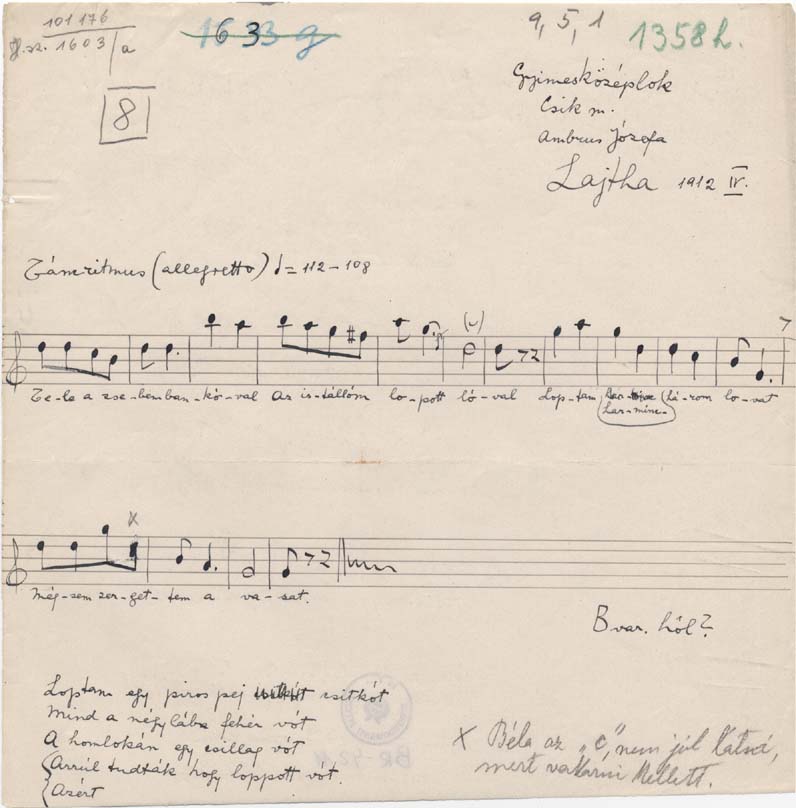 101176
1603/a
1633 g
9, 5, 1
1358 h.
8
Gyimesközéplok
Csik m.
Ambrus Józefa
Lajtha 1912 IV.
Táncritmus (allegretto) = 112 – 108
Te-le a zse-bem ban-kó-val Az is-tállóm lo-pott ló-val Lop-tam (há-rom lo-vat
Har-minc-
Még-sem zer-get-tem a va-sat.
B var. hól?
Loptam egy piros pej csitkót
Mind a négy lába fehér vót
A homlokan egy csillag vót
(Arrúl tudták hogy loppott vót.
(Azért
x Béla az "c", nem jól
mert Mellett.